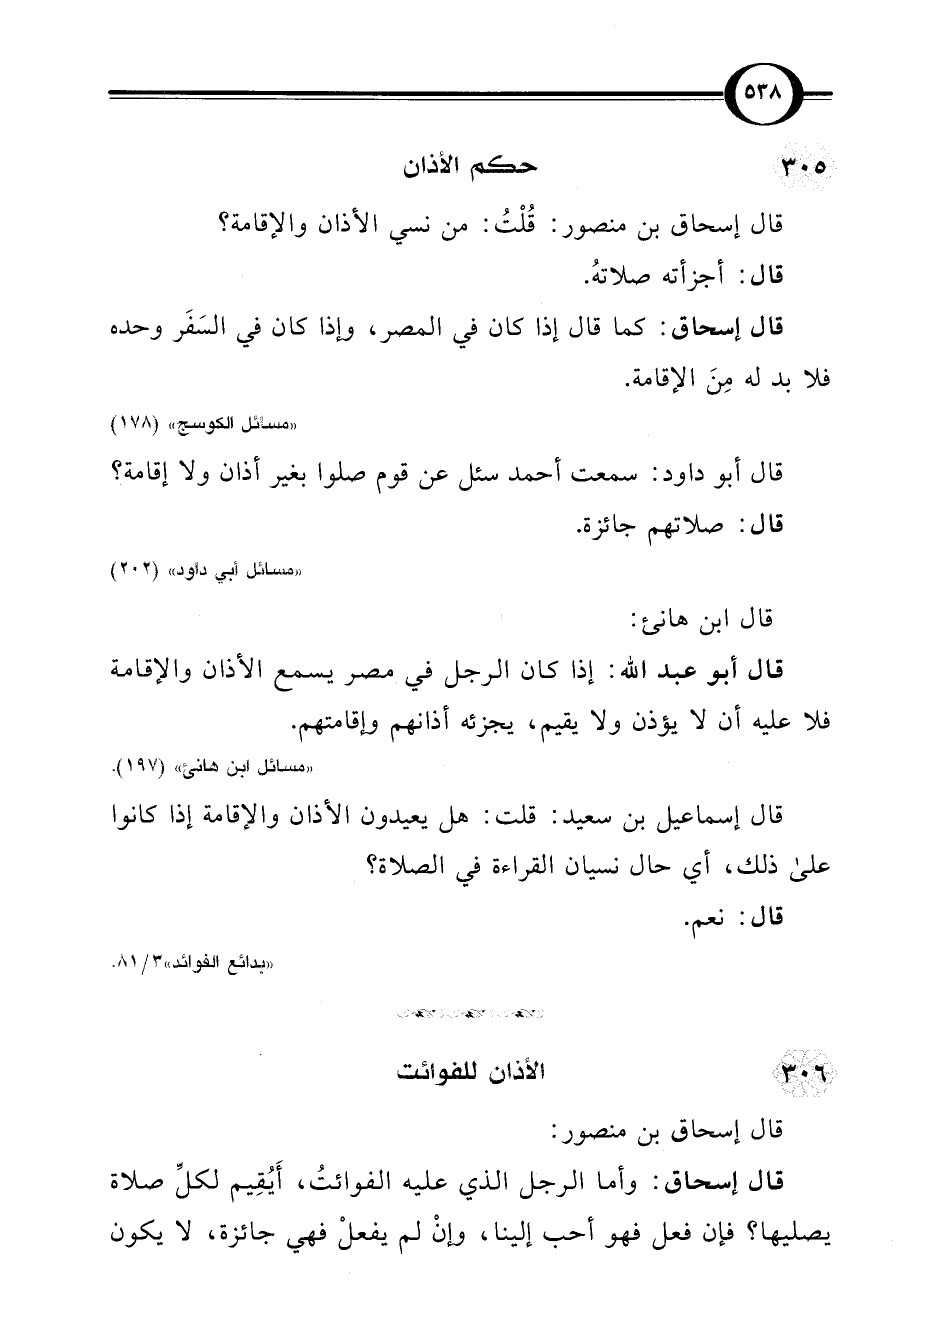 ٥٣٨
٣٠٥ حكم الأذان
قال إسحاق بن منصور: قُلْتُ: من نسي الأذان والإقامة؟
قال: أجزأته صلاتهُ.
قال إسحاق: كما قال إذا كان في المصر، وإذا كان في السَفَر وحده
فلا بد له مِنَ الإقامة.
«مسائل الكوسج» (١٧٨)
قال أبو داود: سمعت أحمد سئل عن قوم صلوا بغير أذان ولا إقامة؟
قال: صلاتهم جائزة.
«مسائل أبي داود» (٢٠٢)
قال ابن هانئ:
قال أبو عبد الله: إذا كان الرجل في مصر يسمع الأذان والإقامة
فلا عليه أن لا يؤذن ولا يقيم، يجزئه أذانهم وإقامتهم.
«مسائل ابن هانئ» (١٩٧).
قال إسماعيل بن سعيد: قلت: هل يعيدون الأذان والإقامة إذا كانوا
علىٰ ذلك، أي حال نسيان القراءة في الصلاة؟
قال: نعم.
«بدائع الفوائد»٣/ ٨١.
٣٠٦ الأذان للفوائت
قال إسحاق بن منصور:
قال إسحاق: وأما الرجل الذي عليه الفوائتُ، أَيُقِيم لكلِّ صلاة
يصليها؟ فإن فعل فهو أحب إلينا، وإنْ لم يفعلْ فهي جائزة، لا يكون